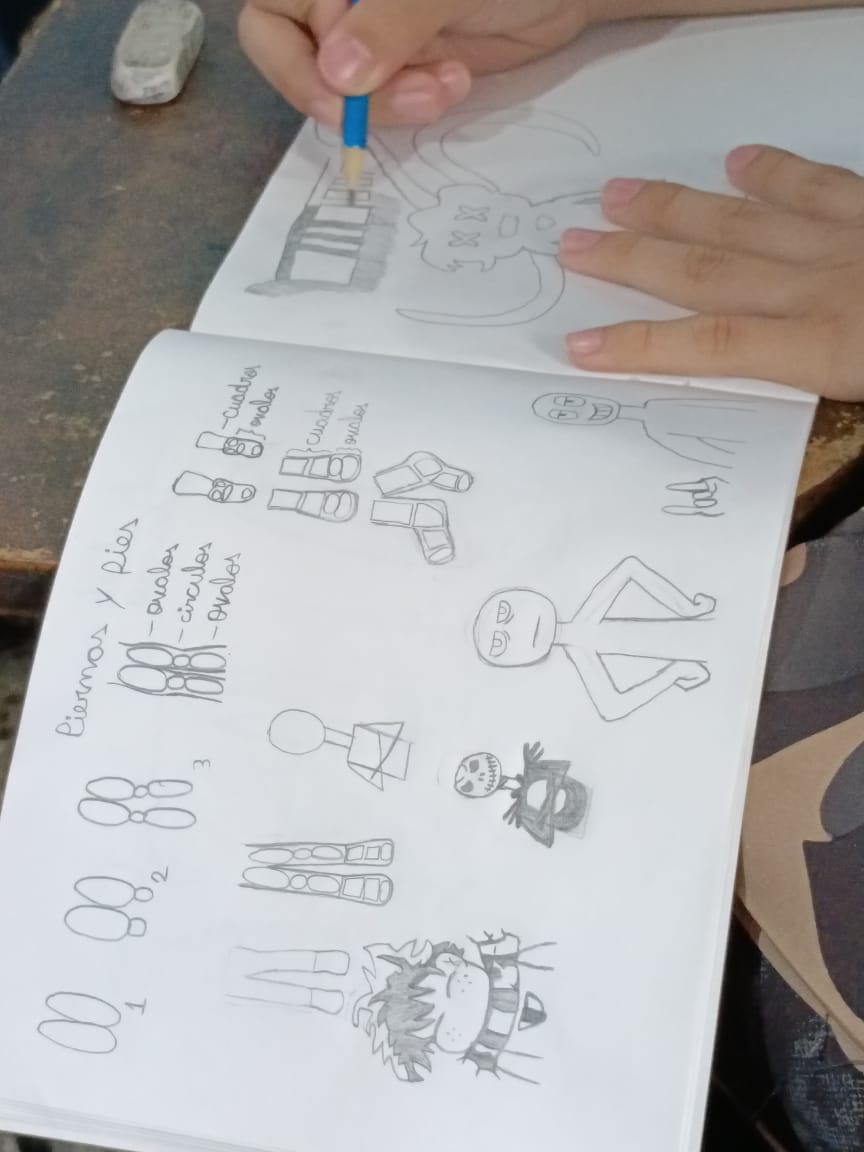 Piernas y pies
- ovalos
- circulos
- ovalos
- cuadros
ovalos
cuadros
ovalos
1
2
3